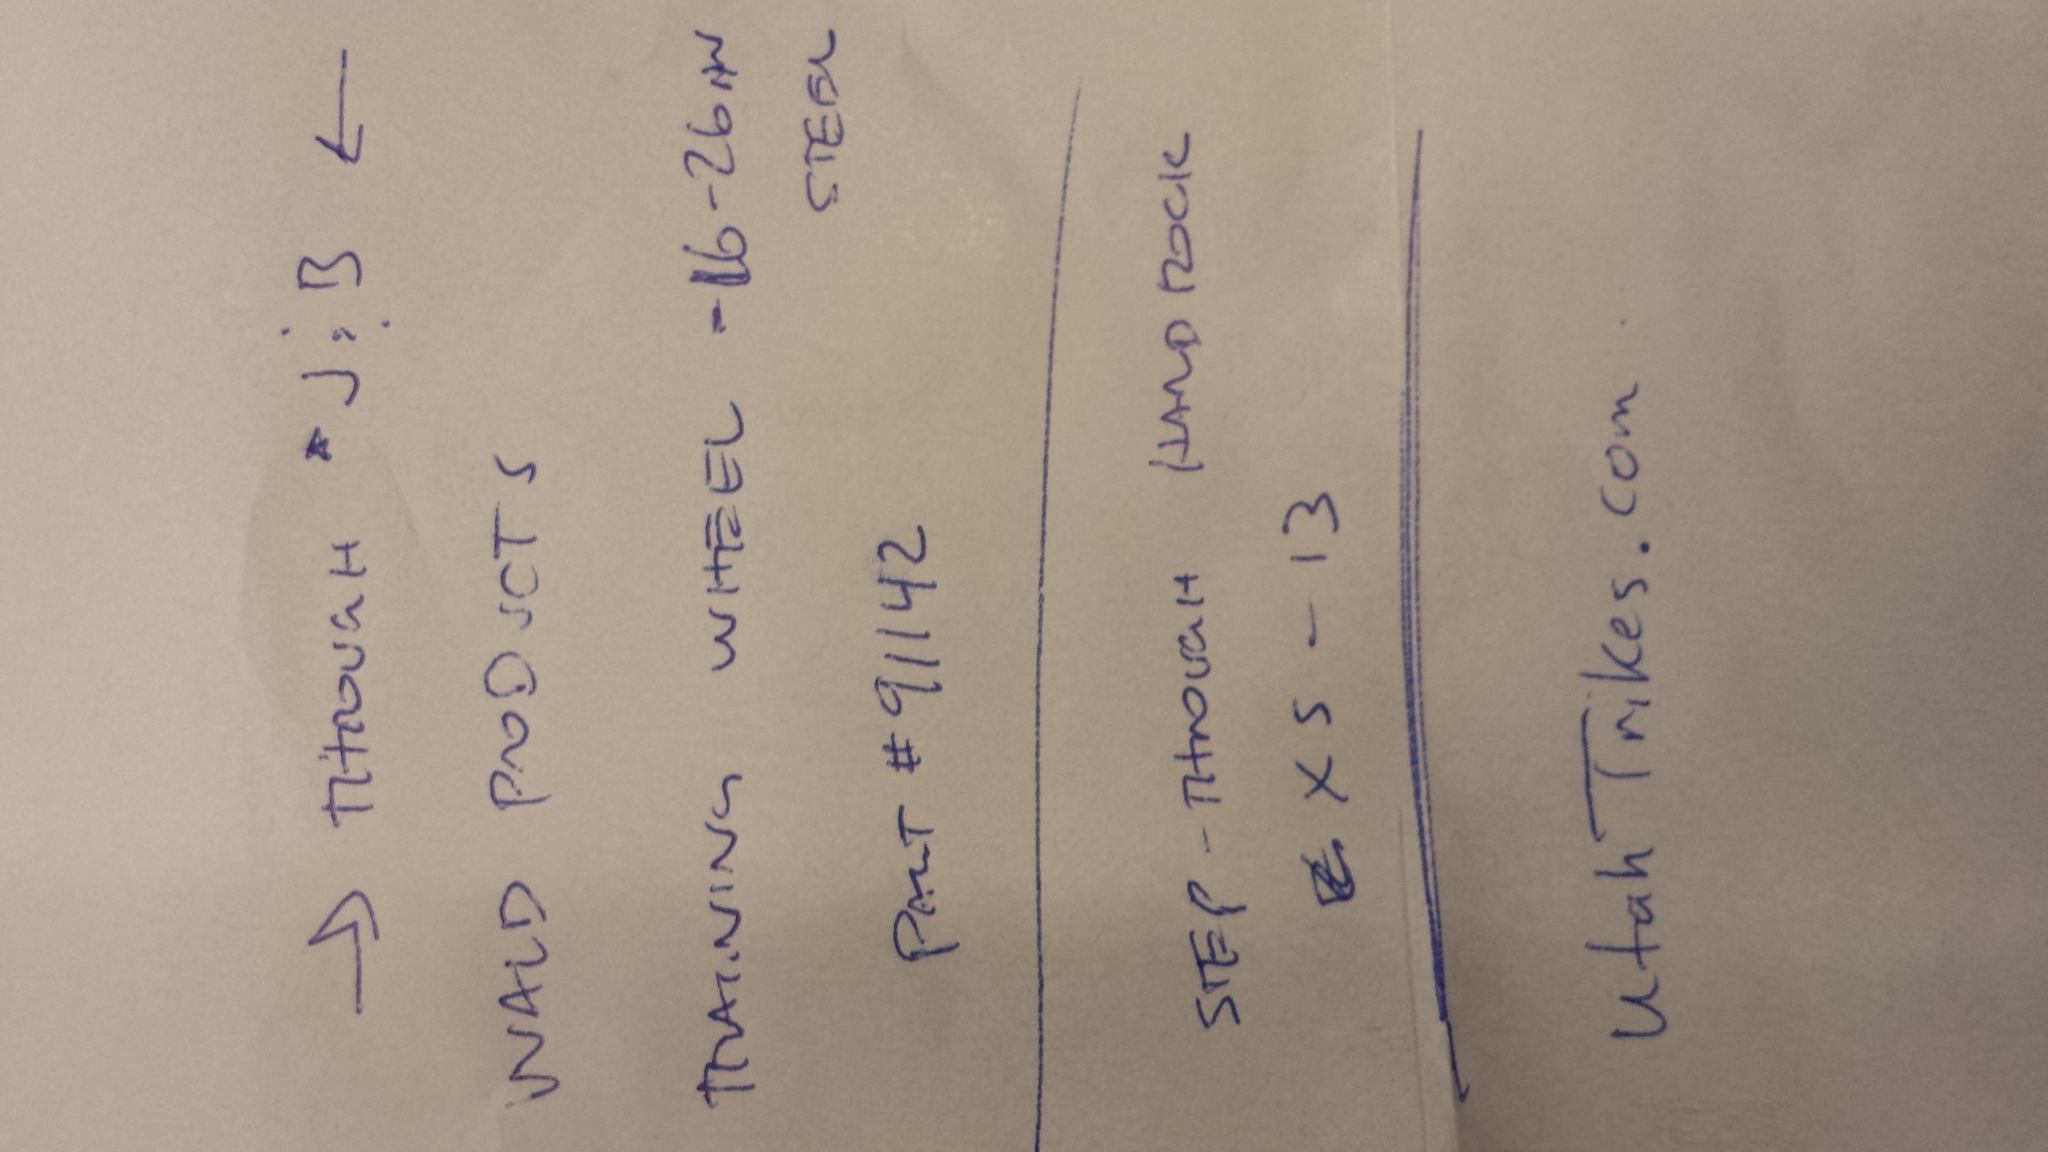 → THROUGH * J:B ←
WALD PRODUCTS
TRAINING WHEEL - 16-26 IN
STEEL
PART #91142
STEP-THROUGH HARDROCK
XS - 13
utahTrikes.com